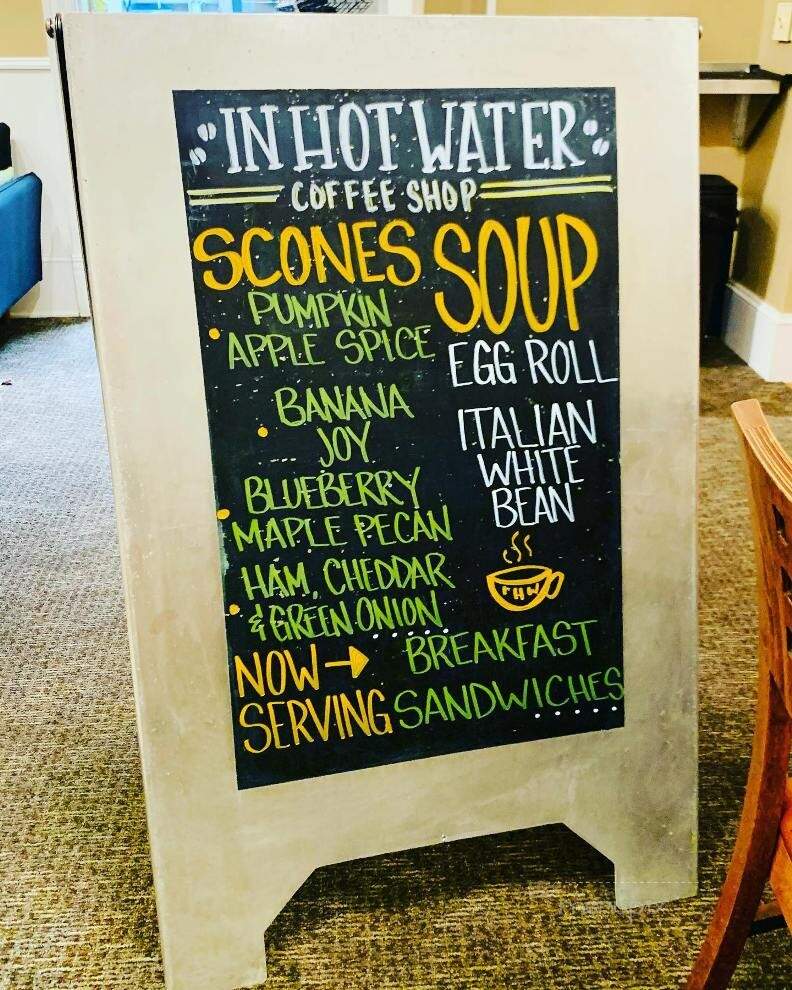 IN HOT WATER
COFFEE SHOP
SCONES
PUMPKIN
APPLE SPICE
BANANA
JOY
BLUEBERRY
MAPLE PECAN
HAM, CHEDDAR
& GREEN ONION
SOUP
EGG ROLL
ITALIAN
WHITE
BEAN
NOW →
SERVING
BREAKFAST
SANDWICHES